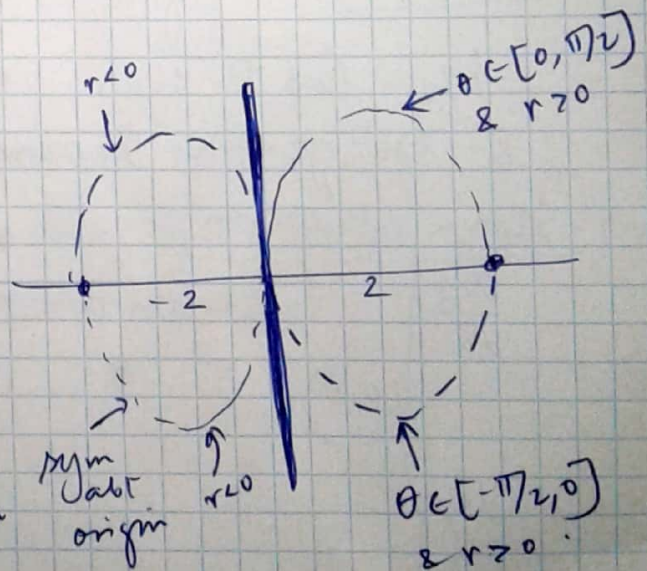 r<0
θ ∈ [0, π/2]
& r≥0
-2
2
sym
abt
origin
r<0
θ ∈ [-π/2, 0]
& r≥0.